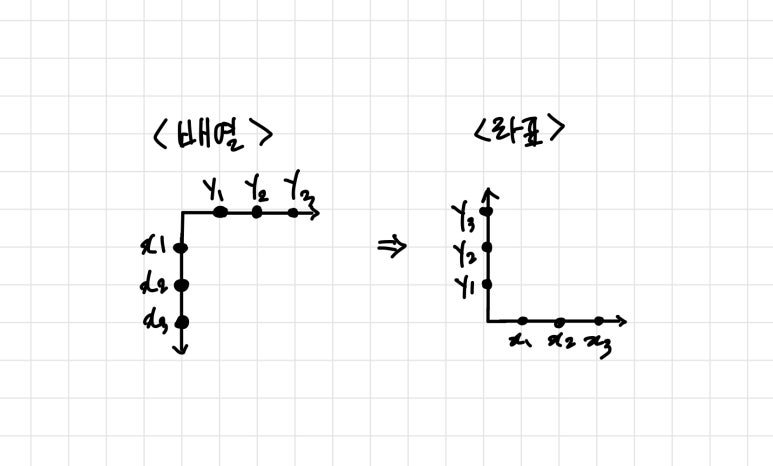 <배열>
Y₁ Y₂ Y₃
x₁
x₂
x₃
⇒
<좌표>
Y₃
Y₂
Y₁
x₁ x₂ x₃